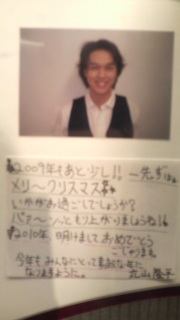 2009年もあと少し!! 一先ずは
メリ〜クリスマス
いかがお過ごしでしょうか?
パァ〜っともり上がりましょうね!!
2010年 明けましておめでとう
ございます。
今年もみんなにとって素敵な年に
なりますように。